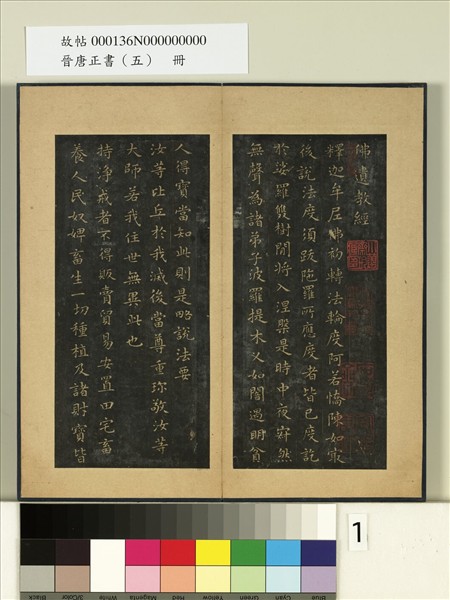 故帖 000136N000000000
晉唐正書（五） 冊
佛遺教經
釋迦牟尼佛初轉法輪度阿若憍陳如㝡
後說法度須跋陁羅所應度者皆已度訖
於娑羅雙樹間將入涅槃是時中夜寂然
無聲為諸弟子波羅提木叉如闇遇明貧
人得寶當知此則是略說法要
汝等比丘於我滅後當尊重珎敬汝等
大師若我住世無異此也
持淨戒者不得販賣貿易安置田宅畜
養人民奴婢畜生一切種植及諸財寶皆
1
Blue Cyan Green Yellow Red Magenta White 3/Color Black